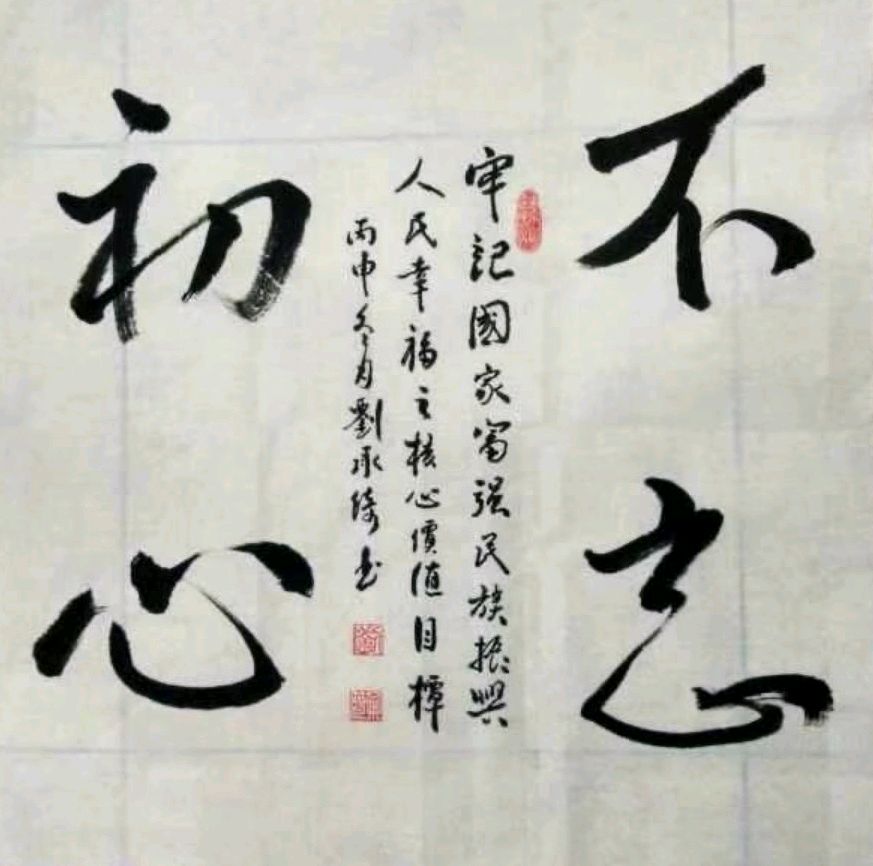 不忘
初心
牢记國家富强民族振興
人民幸福之核心價值目標
丙申冬月劉承绮书